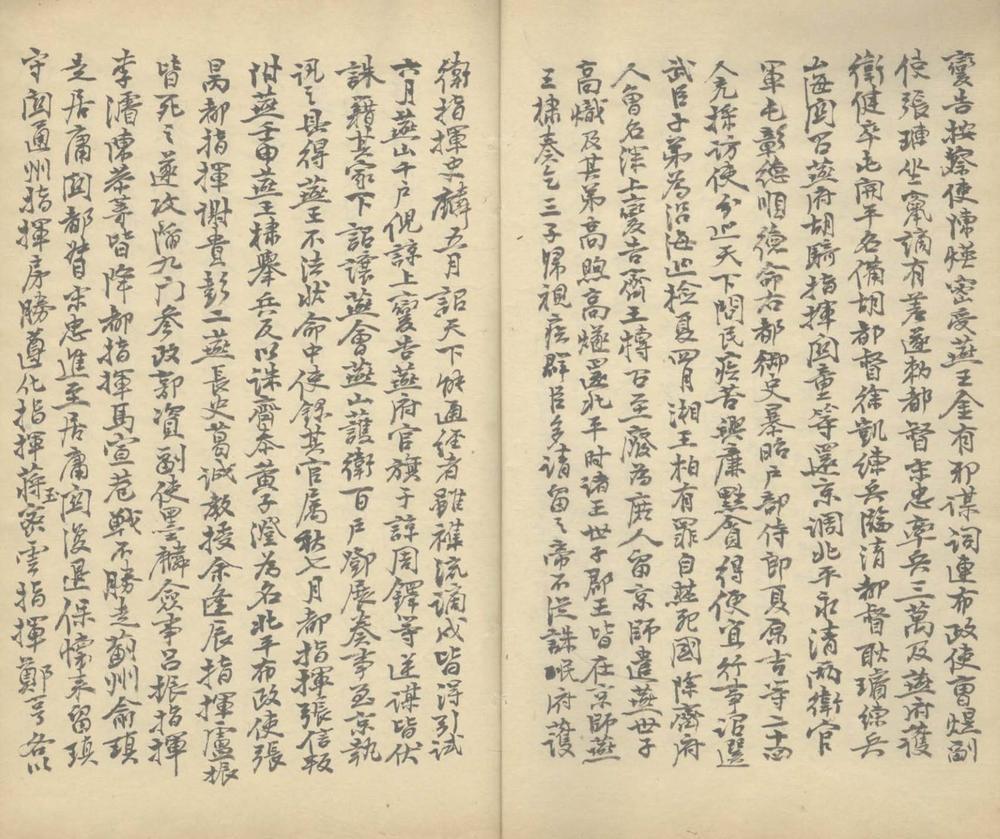 變告按察使陳煐密受燕王金有邪謀詞連布政使曹煜副
使張璉坐竄謫有差遂勅都督宋忠率兵三萬及燕府護
衛健卒屯開平名備胡都督徐凱練兵臨清都督耿瓛練兵
山海關召燕府胡騎指揮關童等還京調北平永清兩衛官
軍屯彰德順德命右都御史暴昭戶部侍郎夏原吉等二十四
人充採訪使分巡天下問民疾苦興廉黜貪得便宜行事詔選
武臣子弟為沿海巡檢夏四月湘王柏有罪自焚死國除齊府
人曾名深上變告齊王摶召至廢為庶人留京師遣燕世子
高熾及其弟高煦高燧還北平时諸王世子郡王皆在京師燕
王棣奏乞三子歸視疾群臣多請留之帝不從誅岷府護
衛指揮史麟五月詔天下能通經者雖雜流謫戍皆得引試
六月燕山千戶倪諒上變告燕府官旗于諒周鐸等逆謀皆伏
誅籍其家下詔讓燕會燕山護衛百戶鄧展奏事至京執
訊之具得燕王不法狀命中使錄其官属秋七月都指揮張信叛
附燕壬申燕王棣舉兵反以誅齊泰黃子澄為名北平布政使張
昺都指揮謝貴彭二燕長史葛誠教授余逢辰指揮盧振
皆死之遂攻陷九門參政郭資副使墨麟僉事呂振指揮
李濬陳恭等皆降都指揮馬宣巷戰不勝走薊州俞瑱
走居庸関都督宋忠進至居庸関復退保懷来留瑱
守関通州指揮房勝遵化指揮蔣玉密雲指揮鄭亨各以